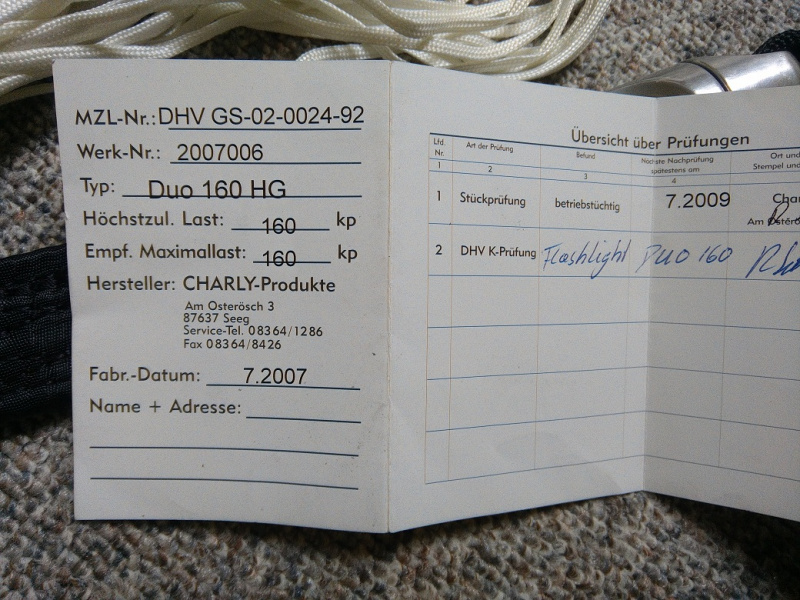 MZL-Nr.: DHV GS-02-0024-92
Werk-Nr.: 2007006
Typ: Duo 160 HG
Höchstzul. Last: 160 kp
Empf. Maximallast: 160 kp
Hersteller: CHARLY-Produkte
Am Osterösch 3
87637 Seeg
Service-Tel. 08364/1286
Fax 08364/8426
Fabr.-Datum: 7.2007
Name + Adresse:
Übersicht über Prüfungen
Lfd. Nr. Art der Prüfung Befund Nächste Nachprüfung spätestens am Ort und
Stempel und
1 2 3 4
1 Stückprüfung betriebstüchtig 7.2009 Cha
Am Osterö
2 DHV K-Prüfung Flashlight Duo 160